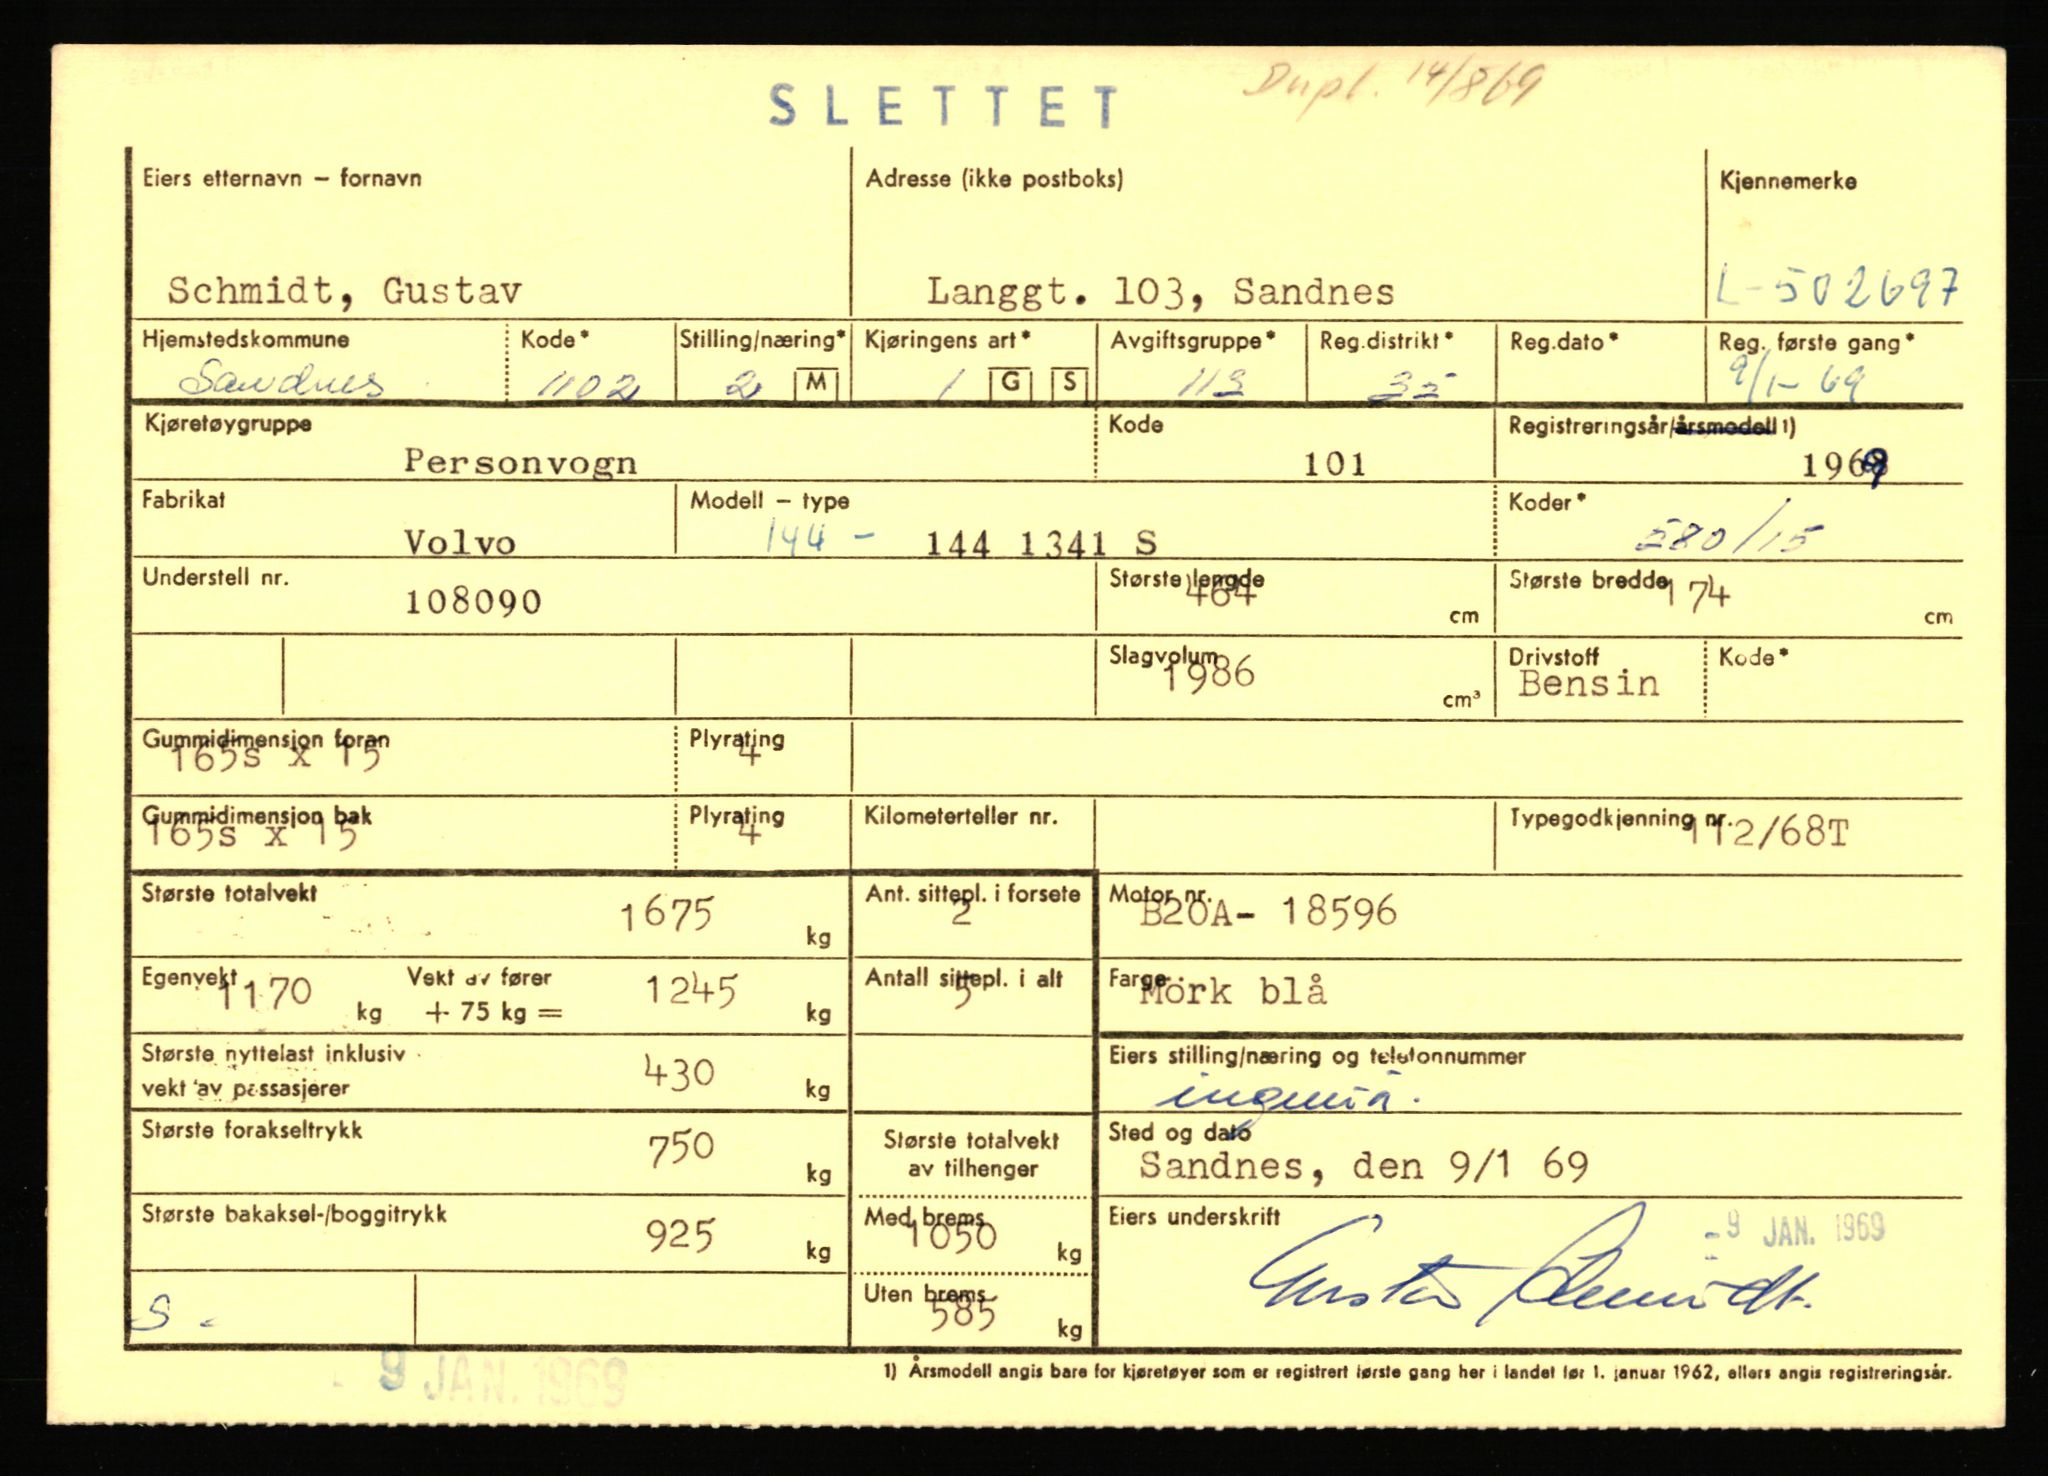 SLETTET
Dupl. 14/8/69
Eiers etternavn – fornavn
Adresse (ikke postboks)
Kjennemerke
Schmidt, Gustav
Langgt. 103, Sandnes
L-502697
Hjemstedskommune
Kode*
Stilling/næring*
Kjøringens art*
Avgiftsgruppe*
Reg.distrikt*
Reg.dato*
Reg. første gang*
Sandnes
1102
2 M
1 G S
113
35
9/1-69
Kjøretøygruppe
Kode
Registreringsår/årsmodell 1)
Personvogn
101
1969
Fabrikat
Modell – type
Koder*
Volvo
144 – 144 1341 S
580/15
Understell nr.
Største lengde
Største bredde
108090
464 cm
174 cm
Slagvolum
Drivstoff
Kode*
1986 cm³
Bensin
Gummidimensjon foran
Plyrating
165s x 15
4
Gummidimensjon bak
Plyrating
Kilometerteller nr.
Typegodkjenning nr.
165s x 15
4
112/68T
Største totalvekt
Ant. sittepl. i forsete
Motor nr.
1675 kg
2
B20A- 18596
Egenvekt
Vekt av fører
Antall sittepl. i alt
Farge
1170 kg
+ 75 kg =
1245 kg
5
Mörk blå
Største nyttelast inklusiv
vekt av passasjerer
430 kg
Eiers stilling/næring og telefonnummer
Største forakseltrykk
750 kg
Største totalvekt
av tilhenger
Sted og dato
Sandnes, den 9/1 69
Største bakaksel-/boggitrykk
925 kg
Med brems
1050 kg
Eiers underskrift
- 9 JAN. 1969
Gustav Schmidt.
S.
Uten brems
585 kg
- 9 JAN. 1969
1) Årsmodell angis bare for kjøretøyer som er registrert første gang her i landet før 1. januar 1962, ellers angis registreringsår.